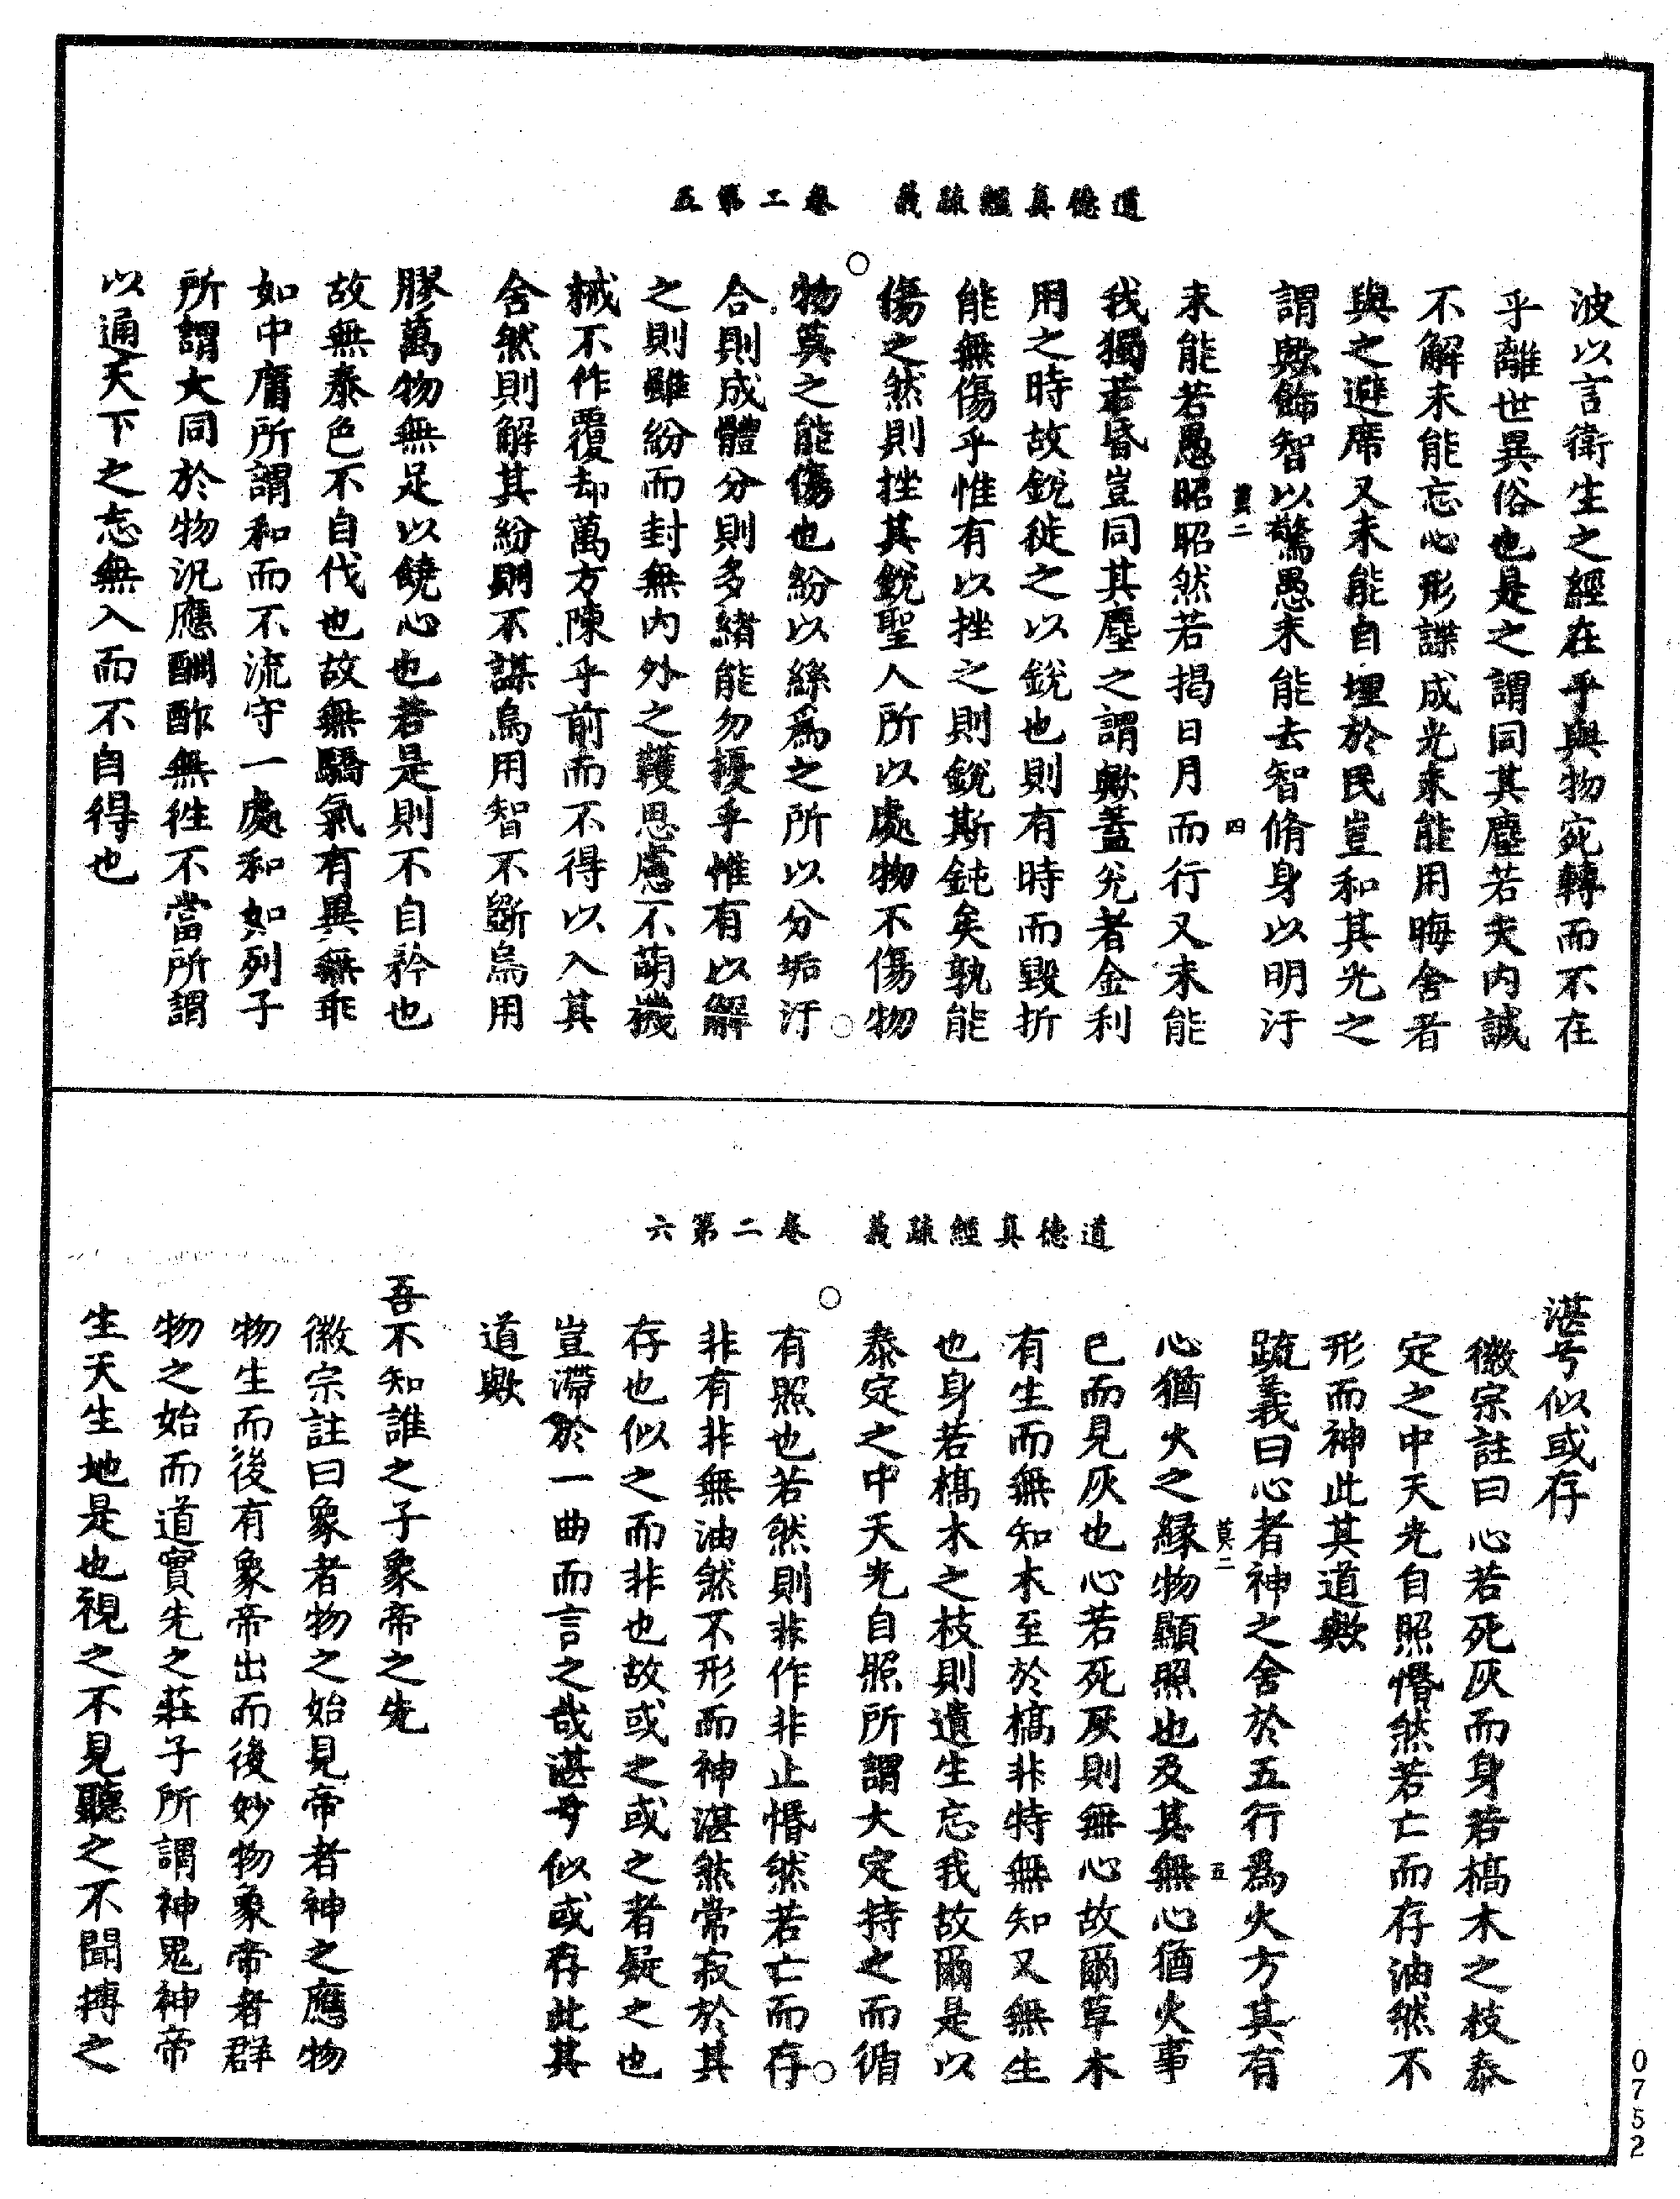 道德真經疏義　卷二第五
波以言衛生之經在乎與物宛轉而不在
乎離世異俗也是之謂同其塵若夫内誠
不解未能忘心形諜成光未能用晦舍者
與之避席又未能自埋於民豈和其光之
謂歟飾智以驚愚未能去智脩身以明汙
莫二　四
未能若愚昭昭然若揭日月而行又未能
我獨若昏豈同其塵之謂歟蓋兊者金利
用之時故銳從之以銳也則有時而毀折
能無傷乎惟有以挫之則銳斯鈍矣孰能
傷之然則挫其銳聖人所以處物不傷物
物莫之能傷也紛以絲爲之所以分垢汙
合則成體分則多緒能勿擾乎惟有以解
之則雖紛而封無内外之韄思慮不萌機
械不作覆却萬方陳乎前而不得以入其
舍然則解其紛則不謀烏用智不斲烏用
膠萬物無足以鐃心也若是則不自矜也
故無泰色不自伐也故無驕氣有異無乖
如中庸所謂和而不流守一處和如列子
所謂大同於物況應酬酢無徃不當所謂
以通天下之志無入而不自得也
道德真經疏義　卷二第六
湛兮似或存
徽宗註曰心若死灰而身若槁木之枝泰
定之中天光自照惛然若亡而存油然不
形而神此其道歟
疏義曰心者神之舍於五行爲火方其有
莫二　五
心猶火之緣物顯照也及其無心猶火事
已而見灰也心若死灰則無心故爾草木
有生而無知木至於槁非特無知又無生
也身若槁木之枝則遺生忘我故爾是以
泰定之中天光自照所謂大定持之而循
有照也若然則非作非止惛然若亡而存
非有非無油然不形而神湛然常寂於其
存也似之而非也故或之或之者疑之也
豈滯於一曲而言之哉湛兮似或存此其
道歟
吾不知誰之子象帝之先
徽宗註曰象者物之始見帝者神之應物
物生而後有象帝出而後妙物象帝者群
物之始而道實先之莊子所謂神鬼神帝
生天生地是也視之不見聽之不聞搏之
0752